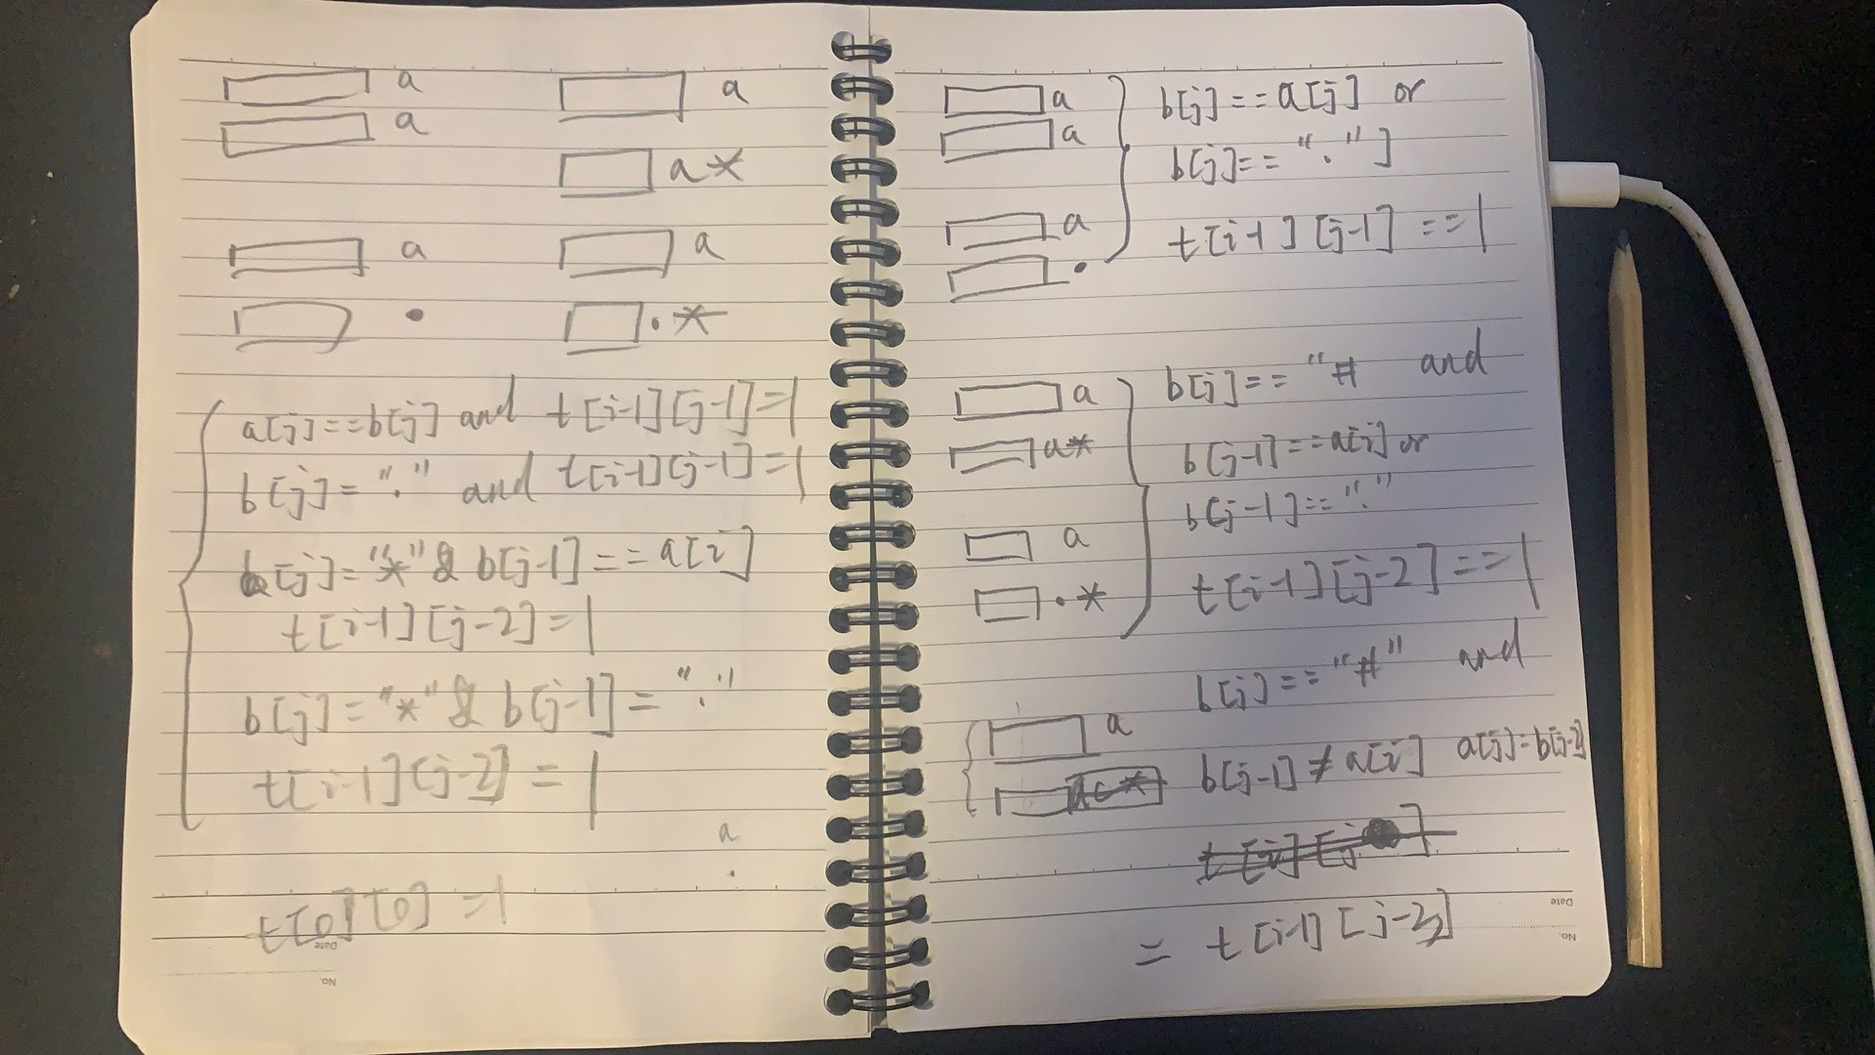 a
a
a
a*
a
a
.
.*
a[j]==b[j] and t[i-1][j-1]=1
b[j]="." and t[i-1][j-1]=1
b[j]="*" & b[j-1]==a[i]
t[i-1][j-2]=1
b[j]="*" & b[j-1]="."
t[i-1][j-2]=1
a
.
t[0][0]=1
Date
No.
a
a
b[j]==a[j] or
b[j]=="."]
a
.
t[i-1][j-1]==1
a
a*
b[j]=="# and
b[j-1]==a[i] or
b[j-1]=="."
a
.*
t[i-1][j-2]==1
b[j]=="#" and
a
b[j-1]≠a[i] a[j]=b[j-2]
= t[i-1][j-2]
Date
No.